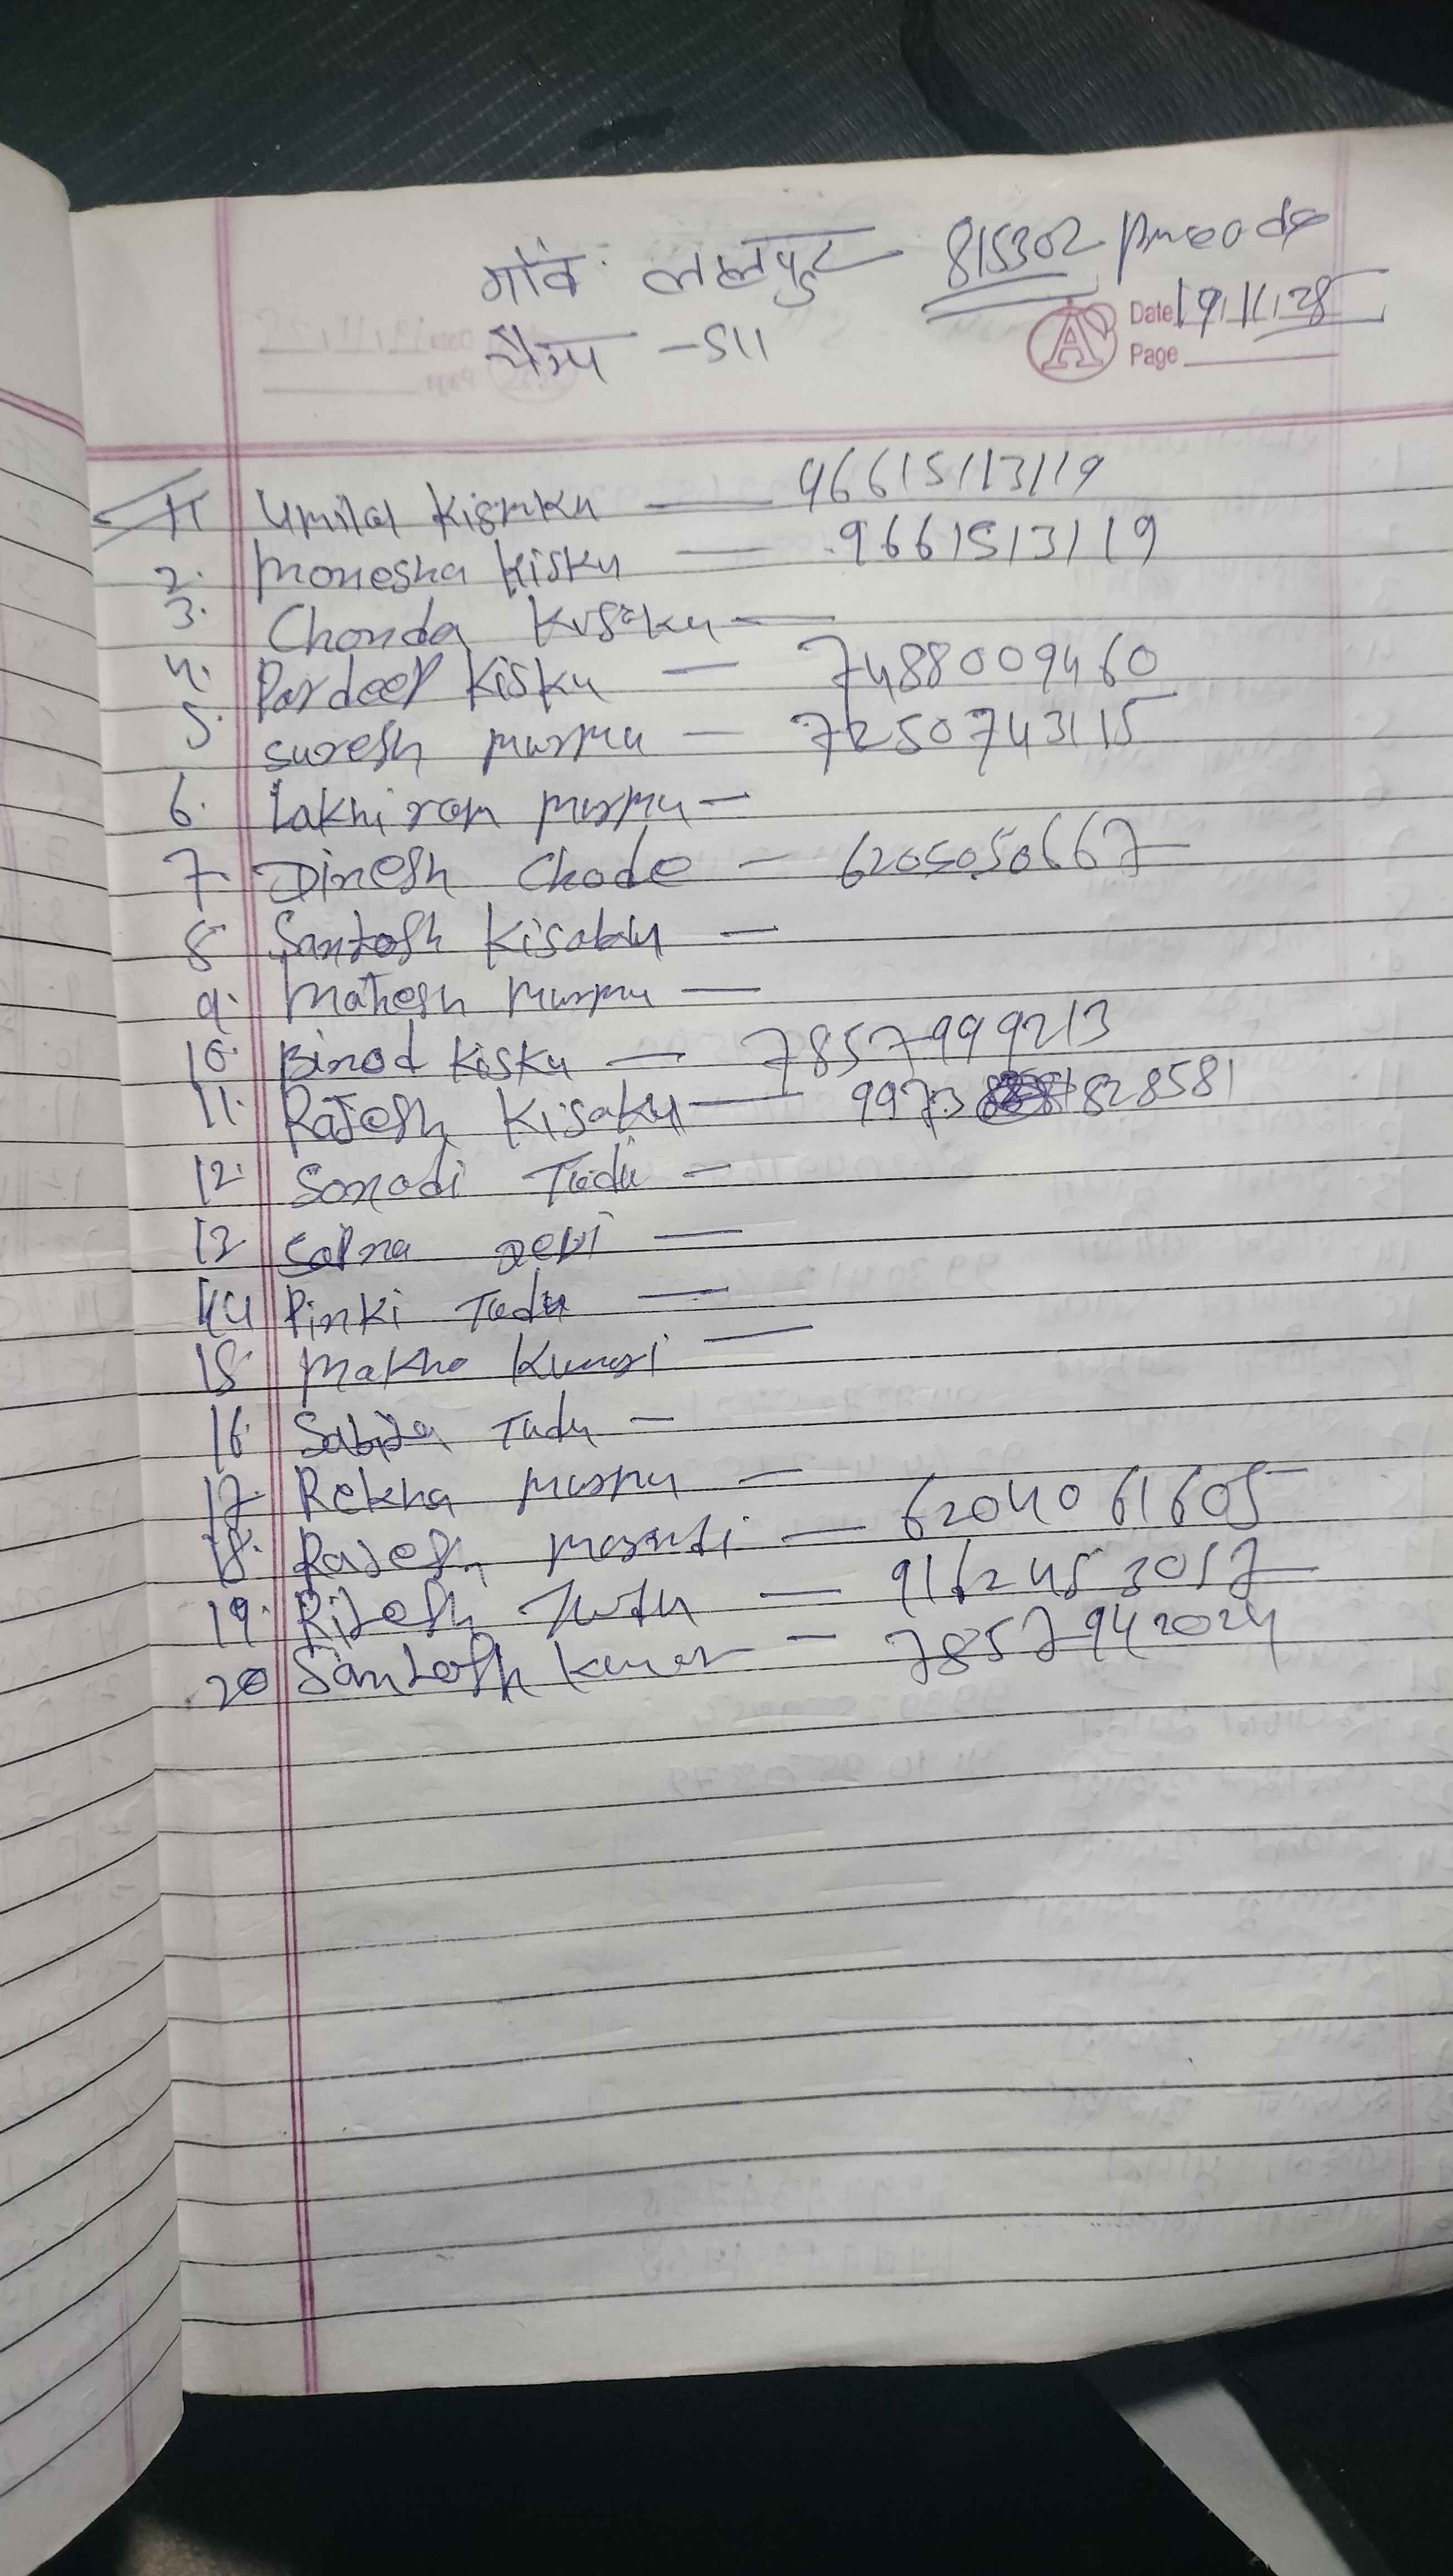 गाँव: ललपुर 815302 Pincode
चैम्प - 511
Date 19/11/25
Page
1. Umilal Kismku — 9661513119
2. Monesha Kisku — 9661513119
3. Chonda Kisaku —
4. Pardeep Kisku — 7488009460
5. Suresh murmu — 7250743115
6. Lakhi ram murmu —
7. Dinesh Chode — 6205050667
8 Santosh Kisaku —
9. Mahesh Murmu —
10. Binod Kisku — 7857999213
11. Rajesh Kisaku — 9973828581
12. Sonadi Tudu —
13 Sapna Devi —
14 Pinki Tudu —
15 Makho Kumari —
16. Sabita Tudu —
17. Rekha murmu —
18. Rajesh marandi — 6204061605
19. Ritesh Tutu — 9162453057
20 Santosh Kumar — 7857942024